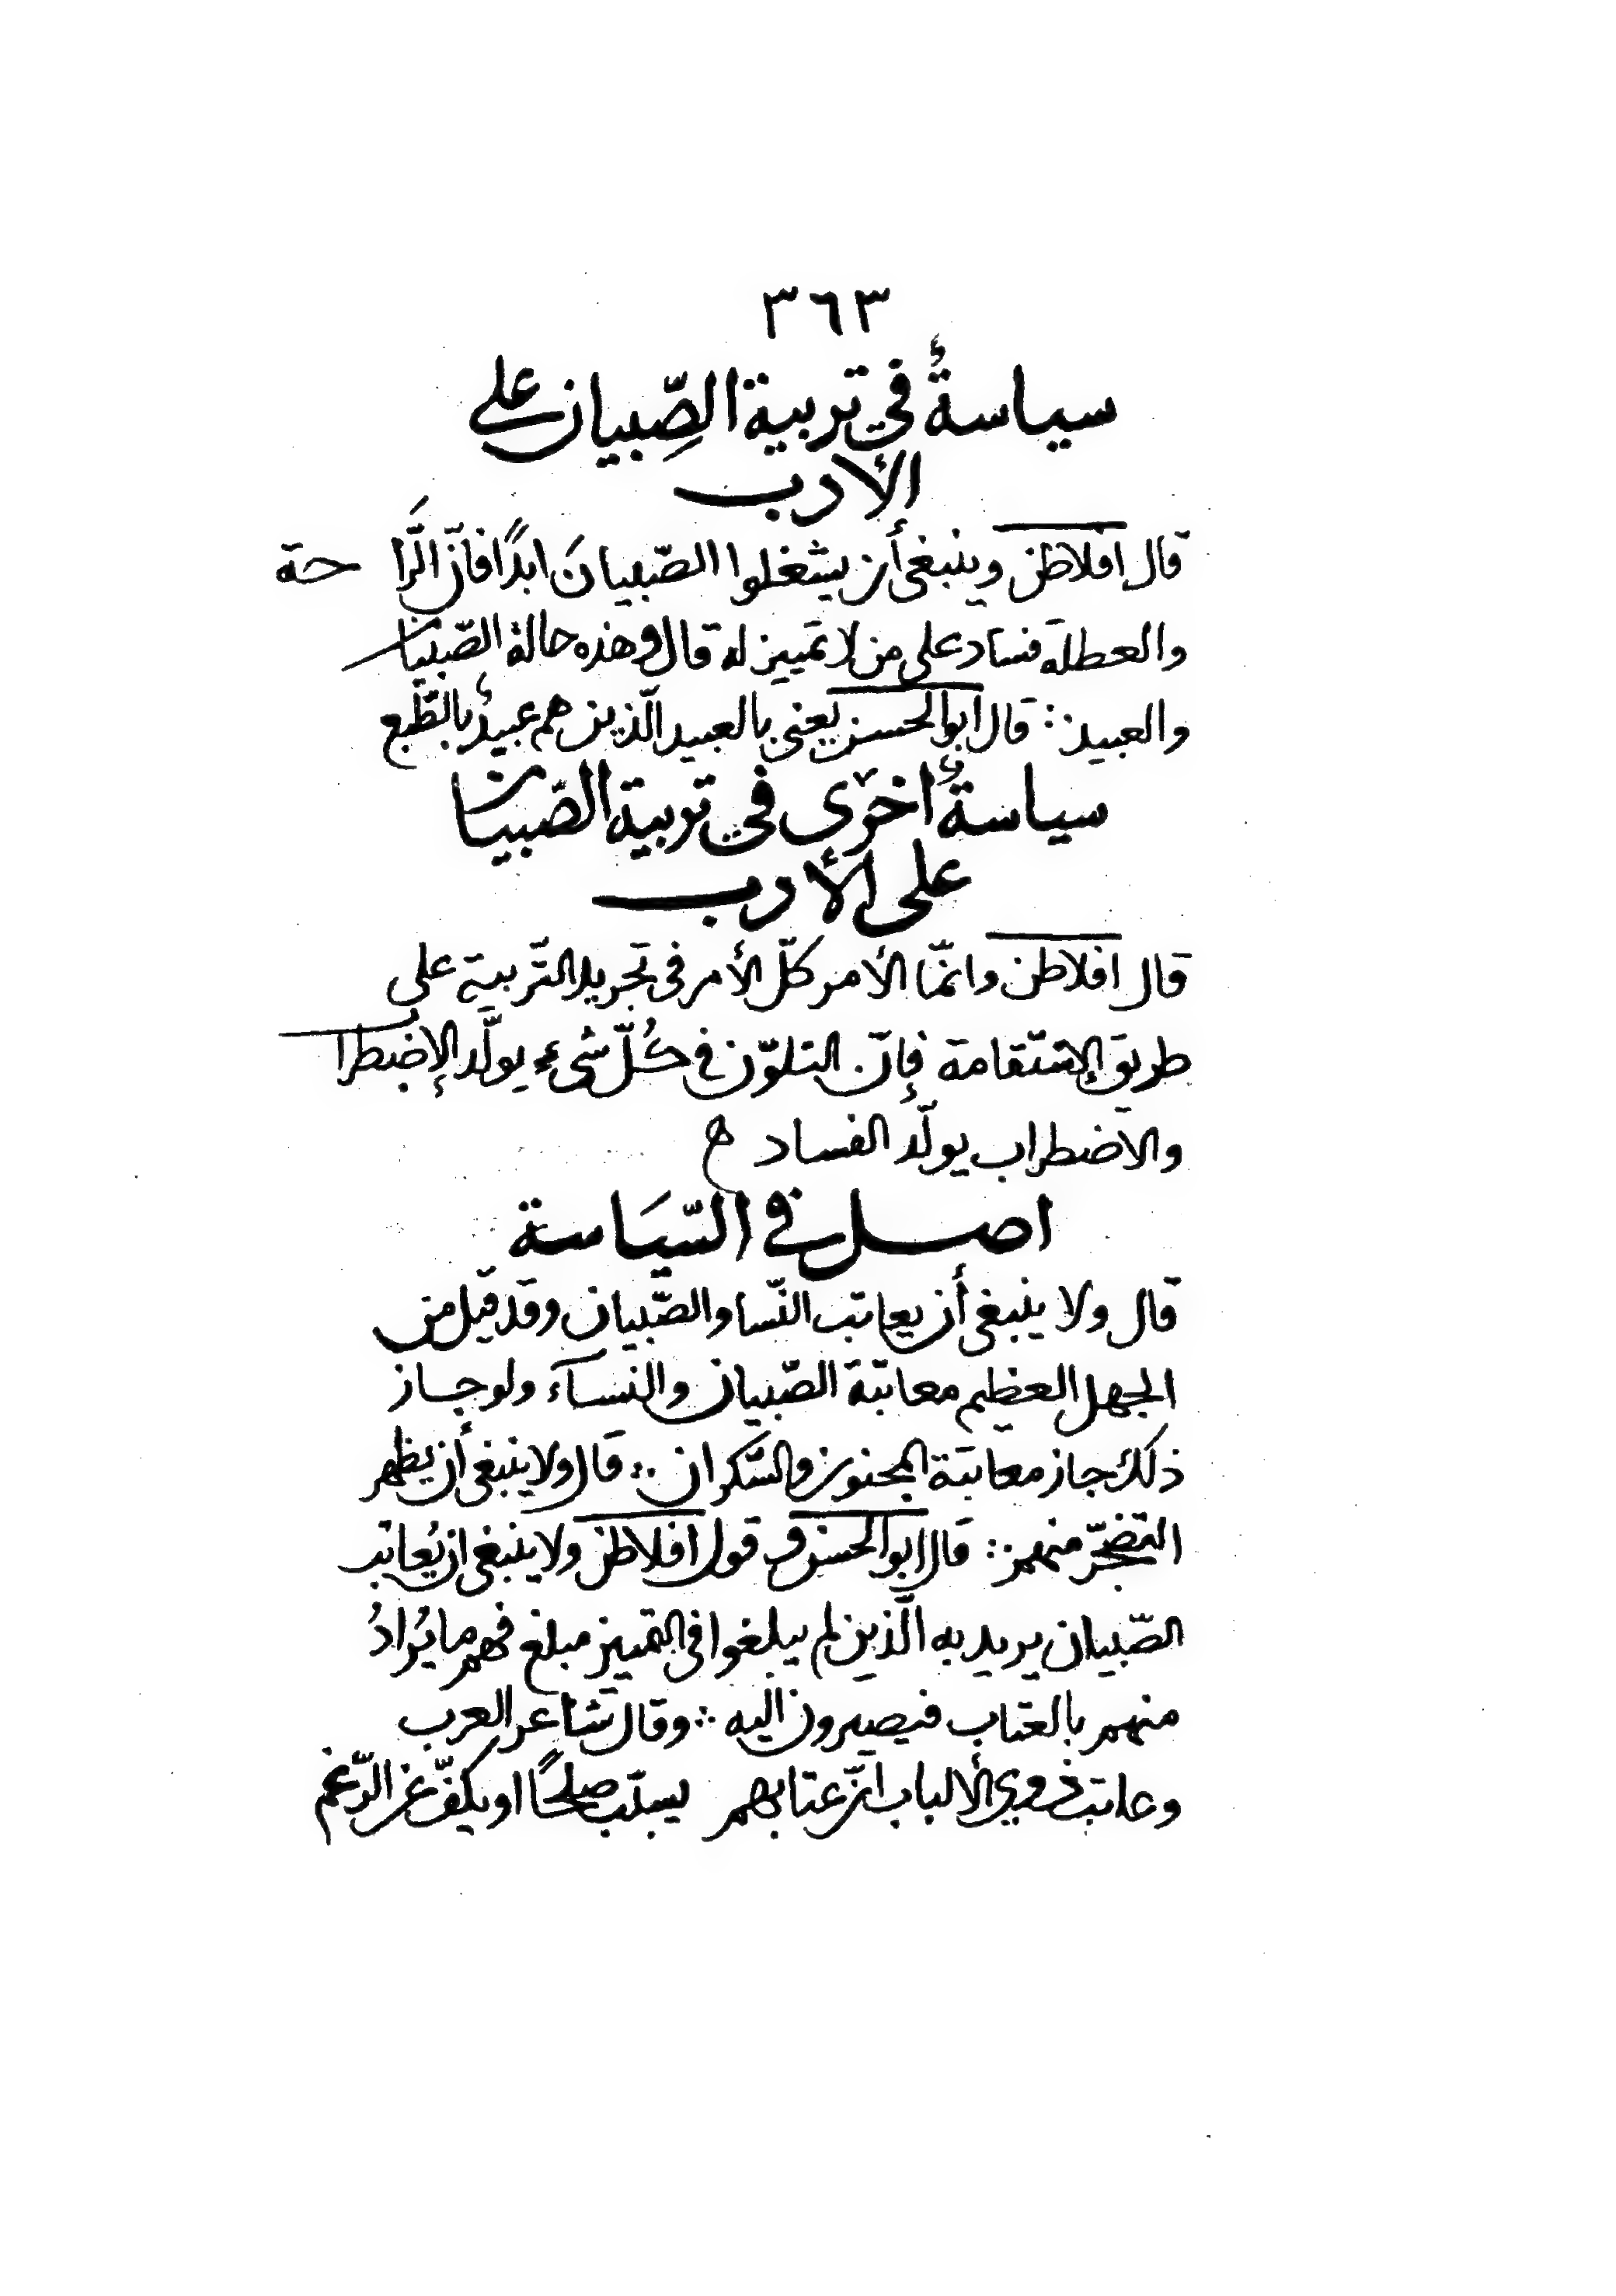 ٣٦٣
سياسةٌ في تربية الصِّبيان على
الأدب
قال افلاطن وينبغي أن يشغلوا الصّبيانَ ابدًا فانّ الَّراحة
والعطلة فساد على من لا تمييز له قال وهذه حالة الصّبيان
والعبيد ∴ قال ابوالحسن يعني بالعبيد الّذين هم عبيدٌ بالطّبع
سياسةٌ اخرى في تربية الصّبيان
على الأدب
قال افلاطن وانمّا الأمر كلّ الأمر في تجريد التّربية على
طريق الإستقامة فإنّ التلوّن في كُلّ شيءٍ يولّد الإضطراب
والاضطراب يولّد الفساد ه
اصل في السّيَاسة
قال ولا ينبغي أن يعاتب النّسا والصّبيان وقد قيل من
الجهل العظيم معاتبة الصّبيان والنسآء ولو جاز
ذلك جاز معاتبة المجنون والسَّكران ∴ قال ولا ينبغي أن يظهر
التضجّر منهم ∴ قال ابوالحسن وقول افلاطن ولا ينبغي ان يُعاتب
الصّبيان يريد به الَّذين لم يبلغوا في التمييز مبلغ فهم ما يُرادُ
منهم بالعتاب فيصيرون اليه ∴ وقال شاعر العرب
وعاتب ذوي الألباب انّ عتابهم يسبّب صلحًا او يكفّ عن الرّغم